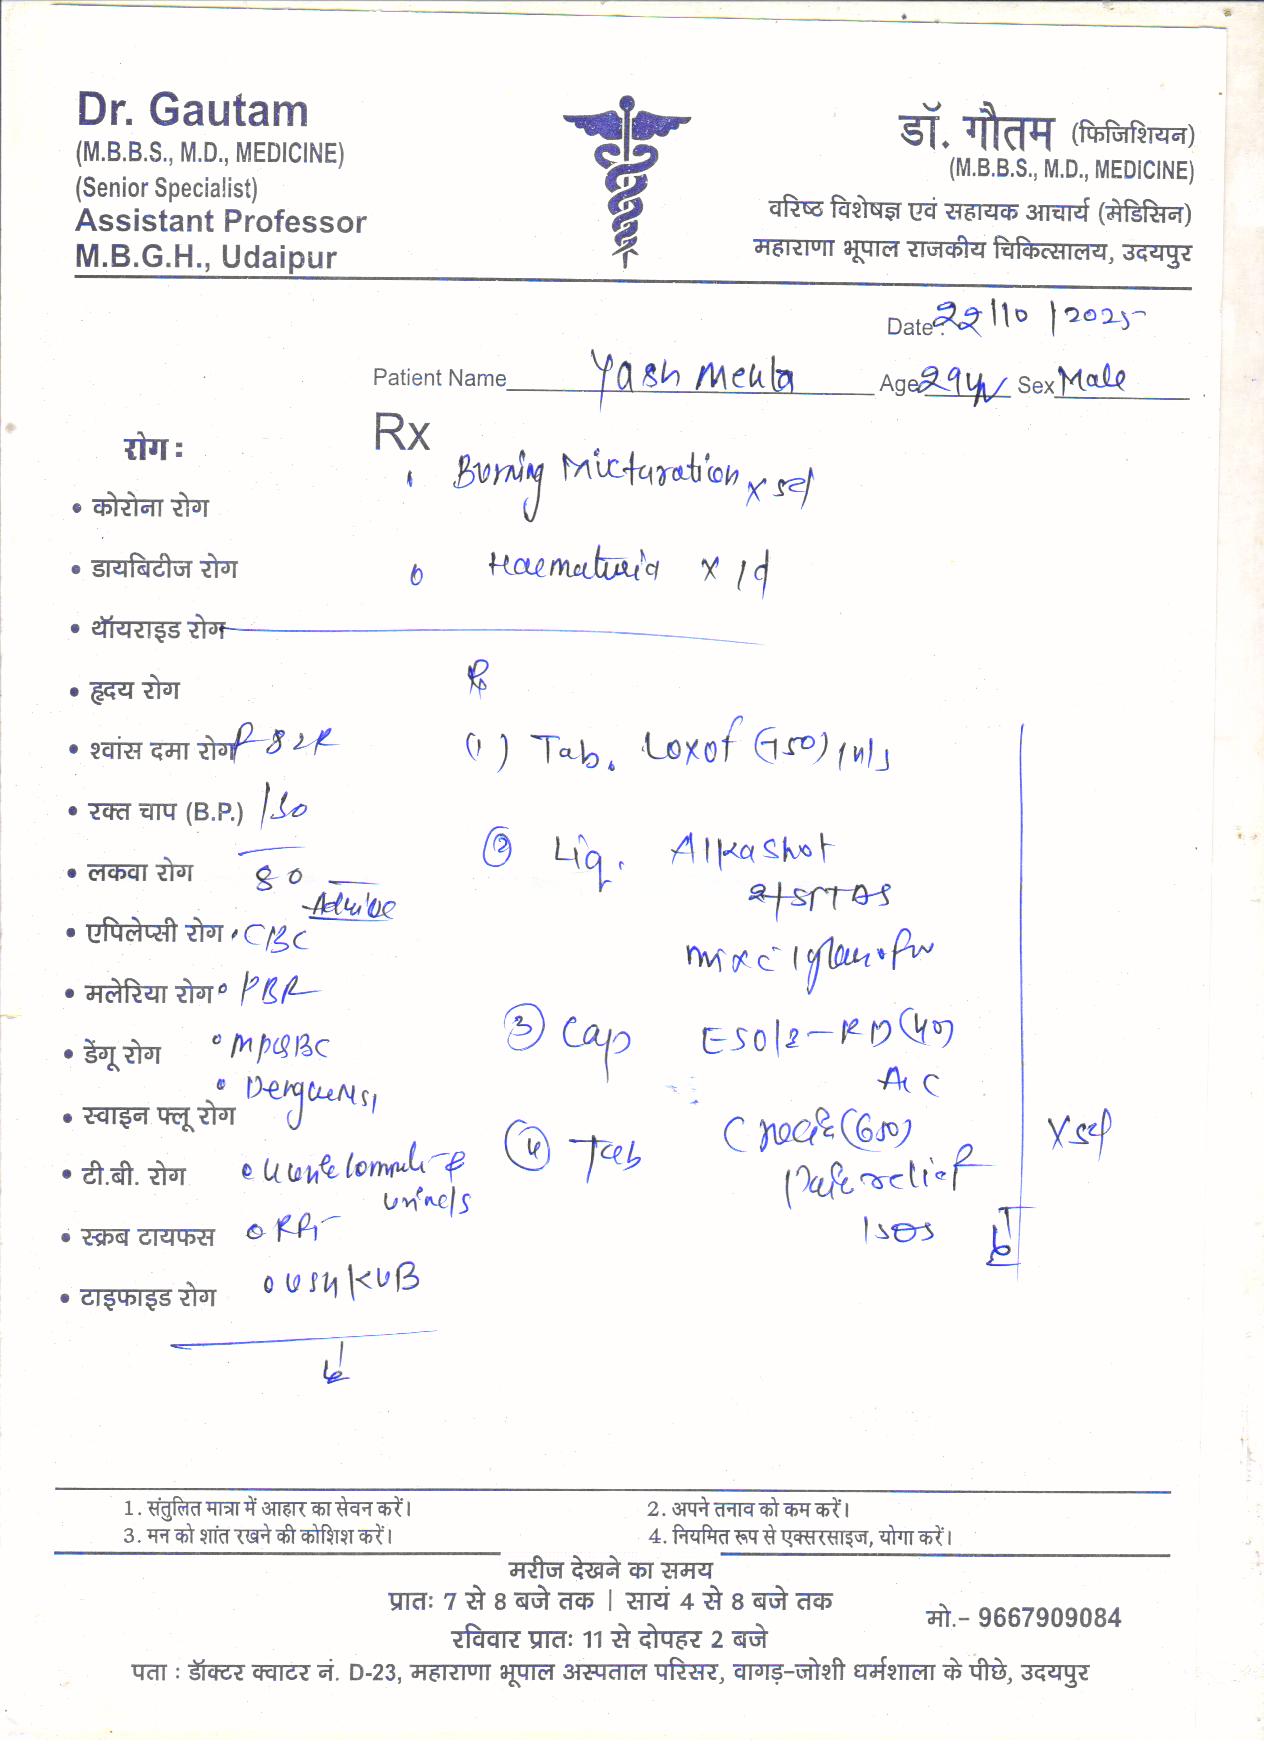 Dr. Gautam
(M.B.B.S., M.D., MEDICINE)
(Senior Specialist)
Assistant Professor
M.B.G.H., Udaipur
डॉ. गौतम (फिजिशियन)
(M.B.B.S., M.D., MEDICINE)
वरिष्ठ विशेषज्ञ एवं सहायक आचार्य (मेडिसिन)
महाराणा भूपाल राजकीय चिकित्सालय, उदयपुर
Date: 22/10/2025
Patient Name Yash Mehta Age 29 Sex Male
Rx
Burning Micturation x
Haematuria x 1d
रोग :
• कोरोना रोग
• डायबिटीज रोग
• थॉयराइड रोग
• हृदय रोग
• श्वांस दमा रोग
• रक्त चाप (B.P.) 130
80
• लकवा रोग
• एपिलेप्सी रोग
• मलेरिया रोग
• डेंगू रोग
• स्वाइन फ्लू रोग
• टी.बी. रोग
• स्क्रब टायफस
• टाइफाइड रोग
P 82
Advice
• CBC
• MPQBC
• Dengue NS1
• RFT
• USG KUB
(1) Tab. Loxof (750)
(2) Liq. Alkashot
(3) Cap (40)
AC
(4) Tab (650)
1 SOS
1. संतुलित मात्रा में आहार का सेवन करें।
2. अपने तनाव को कम करें।
3. मन को शांत रखने की कोशिश करें।
4. नियमित रूप से एक्सरसाइज, योगा करें।
मरीज देखने का समय
प्रातः 7 से 8 बजे तक | सायं 4 से 8 बजे तक
रविवार प्रातः 11 से दोपहर 2 बजे
मो.- 9667909084
पता : डॉक्टर क्वाटर नं. D-23, महाराणा भूपाल अस्पताल परिसर, वागड़-जोशी धर्मशाला के पीछे, उदयपुर